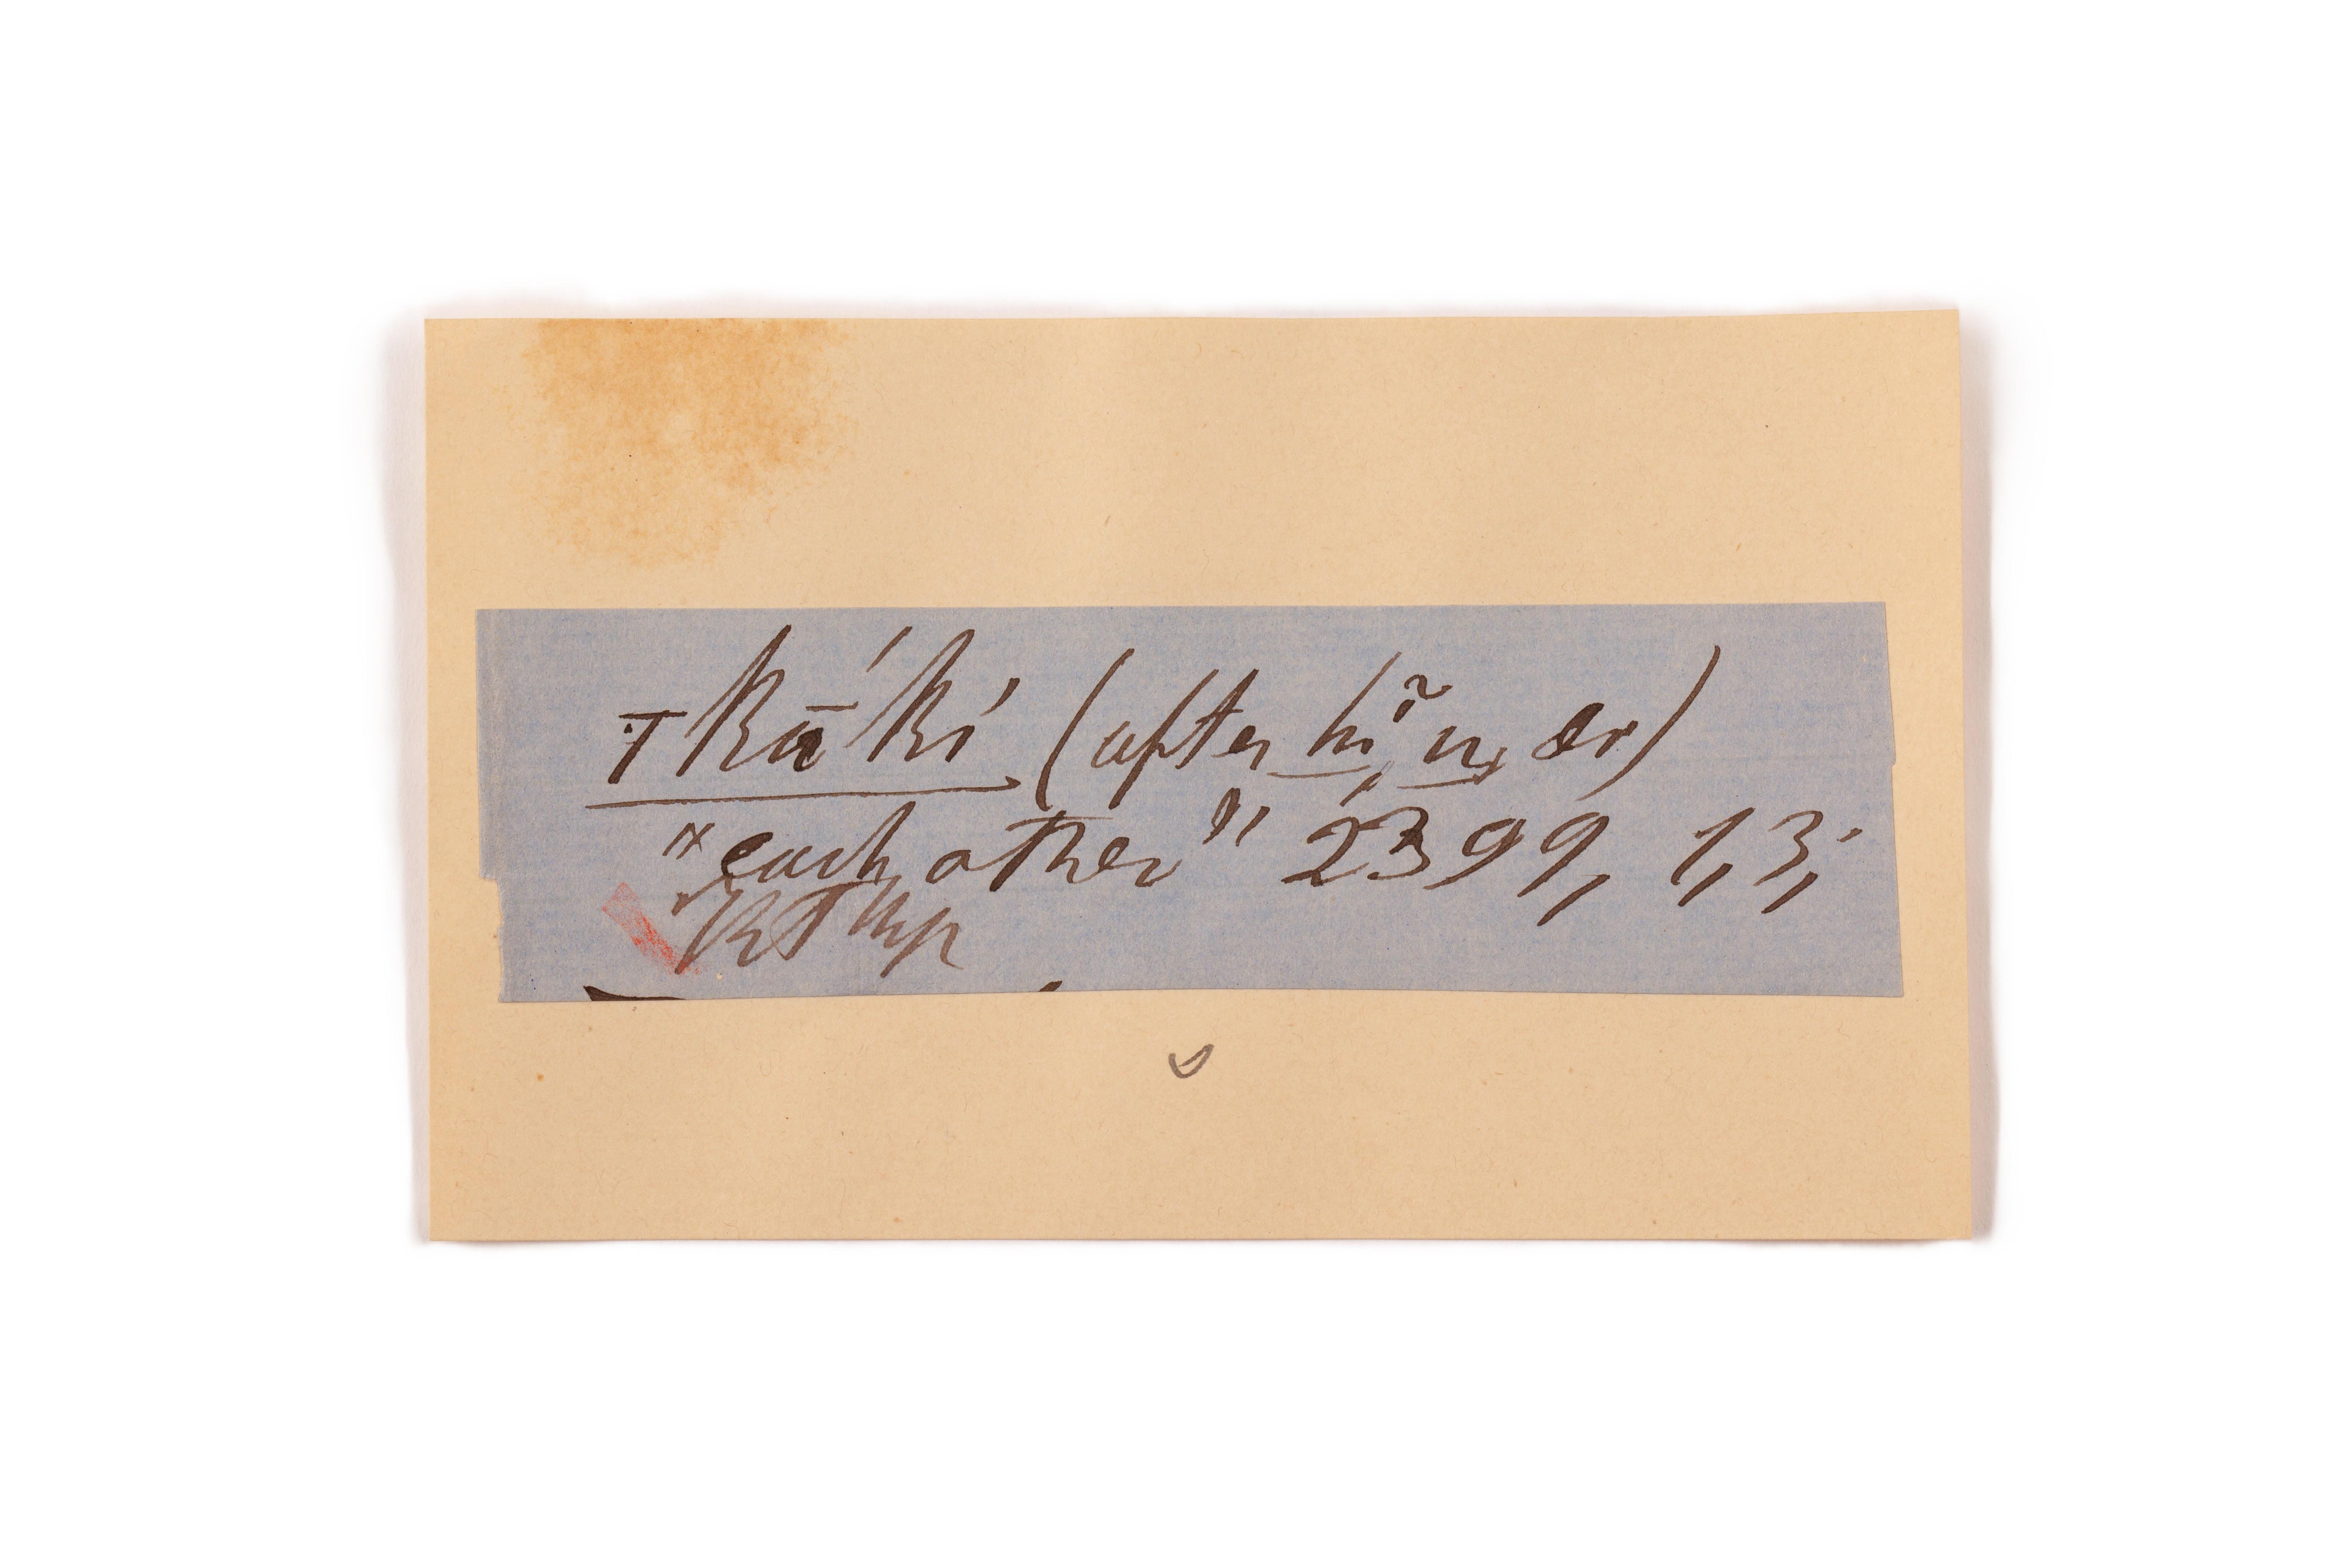 Ṭkā́kí (after hĩ, n, &c)
"each other" 2399, 1,3;